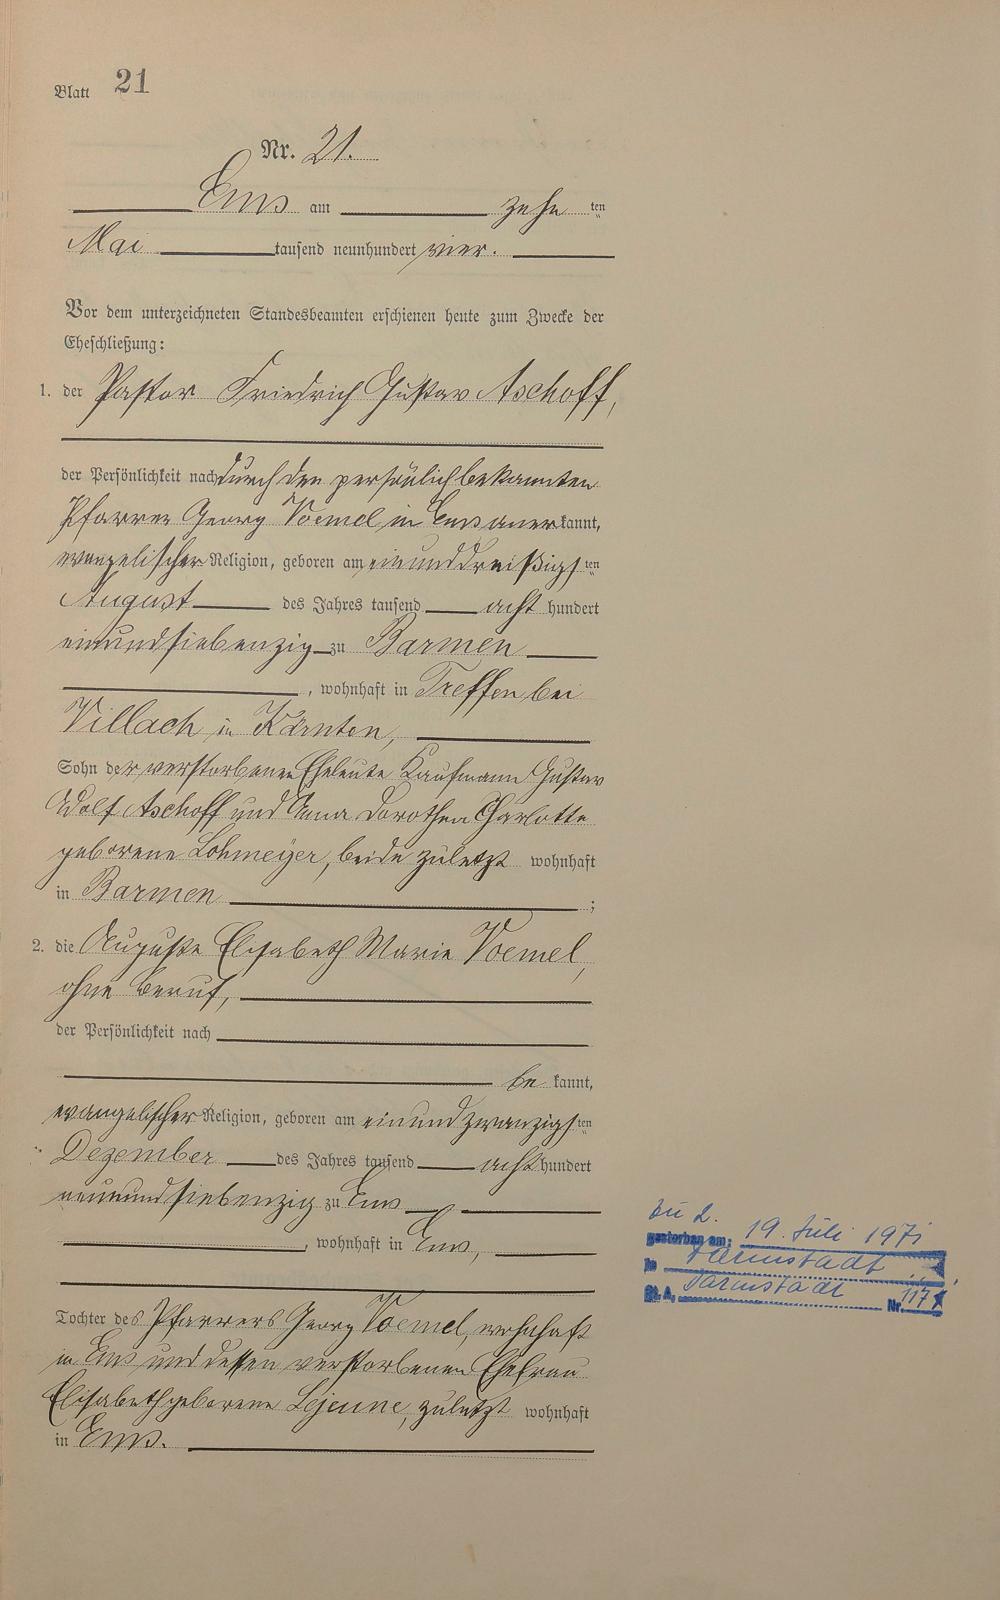 Blatt 21
Nr. 21.
Ems am zehn ten
Mai tausend neunhundert vier.
Vor dem unterzeichneten Standesbeamten erschienen heute zum Zwecke der
Eheschließung:
1. der Pastor Friedrich Gustav Aschoff,
der Persönlichkeit nach durch den persönlich bekannten
Pfarrer Georg Voemel in Ems anerkannt,
evangelischer Religion, geboren am einunddreißigsten
August des Jahres tausend acht hundert
einundsiebenzig zu Barmen
, wohnhaft in Treffen bei
Villach in Kärnten,
Sohn der verstorbenen Eheleute Kaufmann Gustav
Adolf Aschoff und Anna Dorothea Charlotte
geborene Lohmeyer, beide zuletzt wohnhaft
in Barmen ;
2. die Auguste Elisabeth Marie Voemel,
ohne Beruf,
der Persönlichkeit nach
be kannt,
evangelischer Religion, geboren am einundzwanzigsten
Dezember des Jahres tausend acht hundert
neunundsiebenzig zu Ems
, wohnhaft in Ems,
Tochter des Pfarrers Georg Voemel, wohnhaft
in Ems und dessen verstorbenen Ehefrau
Elisabeth geborene Lejeune, zuletzt wohnhaft
in Ems.
zu 2.
gestorben am: 19. Juli 1971
in Darmstadt
St. A. Darmstadt Nr.